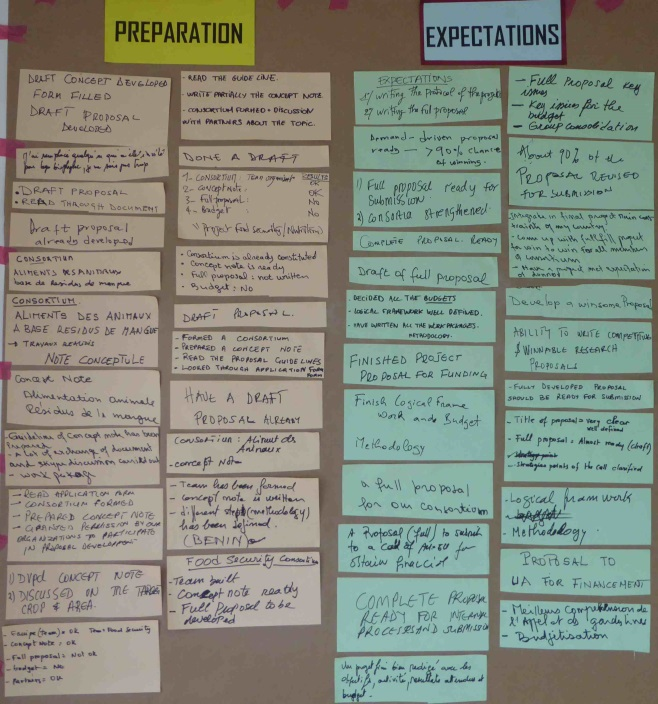 PREPARATION
DRAFT CONCEPT DEVELOPED
FORM FILLED
DRAFT PROPOSAL
DEVELOPED
- DRAFT PROPOSAL
- READ THROUGH DOCUMENT
Draft proposal
already developed
CONSORTIUM
ALIMENTS DES ANIMAUX
base de residus de mangue
CONSORTIUM
ALIMENTS DES ANIMAUX
A BASE RESIDUS DE MANGUE
→ TRAVAUX
NOTE CONCEPTULE
Concept Note
Alimentation animale
Résidus de la mangue
- Guidelines of Concept note has been
prepared
- a lot of exchange of document
and skype discussion carried out
- work package
→ READ APPLICATION FORM
→ CONSORTIUM FORMED
→ PREPARED CONCEPT NOTE
→ PERMISSION BY OUR
ORGANIZATIONS TO PARTICIPATE
IN PROPOSAL DEVELOPMENT
1) DVPed CONCEPT NOTE
2) DISCUSSED ON THE TARGET
CROP & AREA.
- Equipe (Team) = OK Food Security
- Concept Note = OK
- Full proposal = Not OK
- budget = No
- Partners = OK
- READ THE GUIDE LINE.
- WRITE PARTIALLY THE CONCEPT NOTE
- CONSORTIUM FORMED + DISCUSSION
WITH PARTNERS ABOUT THE TOPIC.
DONE A DRAFT
1- CONSORTIUM: Team OK
2- CONCEPT NOTE: OK
3- Full proposal: No
4- Budget: No
Project Food Security/Nutrition)
- Consortium is already constituted
- Concept note is ready
- Full proposal: not written
- Budget: NO
DRAFT PROPOSAL.
- FORMED A CONSORTIUM
- PREPARED A CONCEPT NOTE
- READ THE PROPOSAL GUIDELINES
- LOOKED THROUGH APPLICATION FORM
HAVE A DRAFT
PROPOSAL ALREADY
Consortium: Aliment des
Animaux
- concept Note
- Team has been formed
- concept note is written
- different step (methodology)
has been defined.
(BENIN)
Food Security Consortium
- Team built
- Concept note ready
- Full Proposal to be
developed
EXPECTATIONS
EXPECTATIONS
1°/ writing the protocol of the project
2°/ writing the full proposal
Demand-driven proposal
ready → >90% chance
of winning.
1) Full proposal ready for
Submission
2) Consortia strengthened.
COMPLETE PROPOSAL READY
Draft of full proposal
- DECIDED ALL THE BUDGETS
- LOGICAL FRAMEWORK WELL DEFINED.
- HAVE WRITTEN ALL THE WORK PACKAGES.
METHODOLOGY.
FINISHED PROJECT
PROPOSAL FOR FUNDING
Finish Logical Frame
Work and Budget
Methodology
a full proposal
for our consortium
A Proposal (full) to submit
to a Call of for
obtain financial
COMPLETE PROPOSAL
READY FOR INTERNAL
PROCESSES AND SUBMISSION
Un projet fini bien redigé avec les
objectifs, activités, resultats attendus et
budget.
- Full Proposal key
issues
- Key issues for the
budget
- Group consolidation
About 90% of the
PROPOSAL REVISED
FOR SUBMISSION
Develop a winsome Proposal
ABILITY TO WRITE COMPETITIVE
& WINNABLE RESEARCH
PROPOSALS
- FULLY DEVELOPED PROPOSAL
SHOULD BE READY FOR SUBMISSION
- Title of proposal = very clear
well defined
- Full proposal = Almost ready (draft)
- strategic points of the call clarified
- Logical framwork
- Methodology.
PROPOSAL TO
UA FOR FINANCEMENT
- Meilleure Comprehension de
l'Appel et de guidelines
- Budjetisation